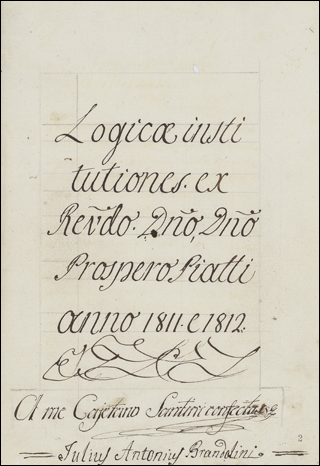 Logicæ insti
tutiones. ex
Rev̄do. Dn̄o, Dn̄o
Prospero Piatti
anno 1811. e 1812.
A me Cajetano Santini confectæ
2
Julius Antonius Brandolini